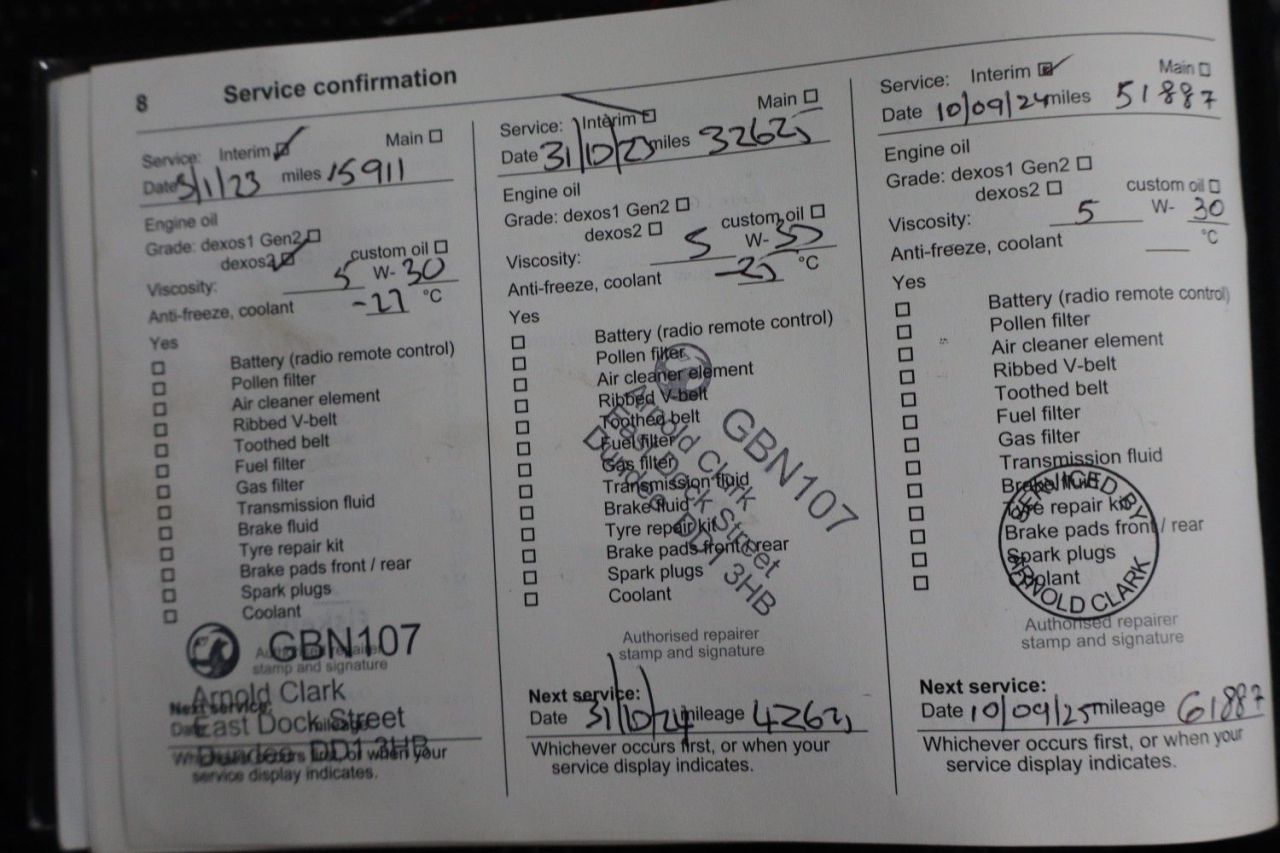 8 Service confirmation
Service: Interim Main
Date 5/1/23 miles 15911
Engine oil
Grade: dexos1 Gen2
dexos2 custom oil
Viscosity: 5 W- 30
Anti-freeze, coolant -27 °C
Yes
Battery (radio remote control)
Pollen filter
Air cleaner element
Ribbed V-belt
Toothed belt
Fuel filter
Gas filter
Transmission fluid
Brake fluid
Tyre repair kit
Brake pads front / rear
Spark plugs
Coolant
GBN107
Authorised repairer
stamp and signature
Arnold Clark
East Dock Street
Dundee DD1 3HB
Next service:
Date mileage
Whichever occurs first, or when your
service display indicates.
Service: Interim Main
Date 31/10/23 miles 32625
Engine oil
Grade: dexos1 Gen2
dexos2 custom oil
Viscosity: 5 W- 30
Anti-freeze, coolant -25 °C
Yes
Battery (radio remote control)
Pollen filter
Air cleaner element
Ribbed V-belt
Toothed belt
Fuel filter
Gas filter
Transmission fluid
Brake fluid
Tyre repair kit
Brake pads front / rear
Spark plugs
Coolant
GBN107
Arnold Clark
East Dock Street
Dundee DD1 3HB
Authorised repairer
stamp and signature
Next service:
Date 31/10/24 mileage 42625
Whichever occurs first, or when your
service display indicates.
Service: Interim Main
Date 10/09/24 miles 51887
Engine oil
Grade: dexos1 Gen2
dexos2 custom oil
Viscosity: 5 W- 30
Anti-freeze, coolant °C
Yes
Battery (radio remote control)
Pollen filter
Air cleaner element
Ribbed V-belt
Toothed belt
Fuel filter
Gas filter
Transmission fluid
Brake fluid
Tyre repair kit
Brake pads front / rear
Spark plugs
Coolant
SERVICED BY
ARNOLD CLARK
Authorised repairer
stamp and signature
Next service:
Date 10/09/25 mileage 61887
Whichever occurs first, or when your
service display indicates.